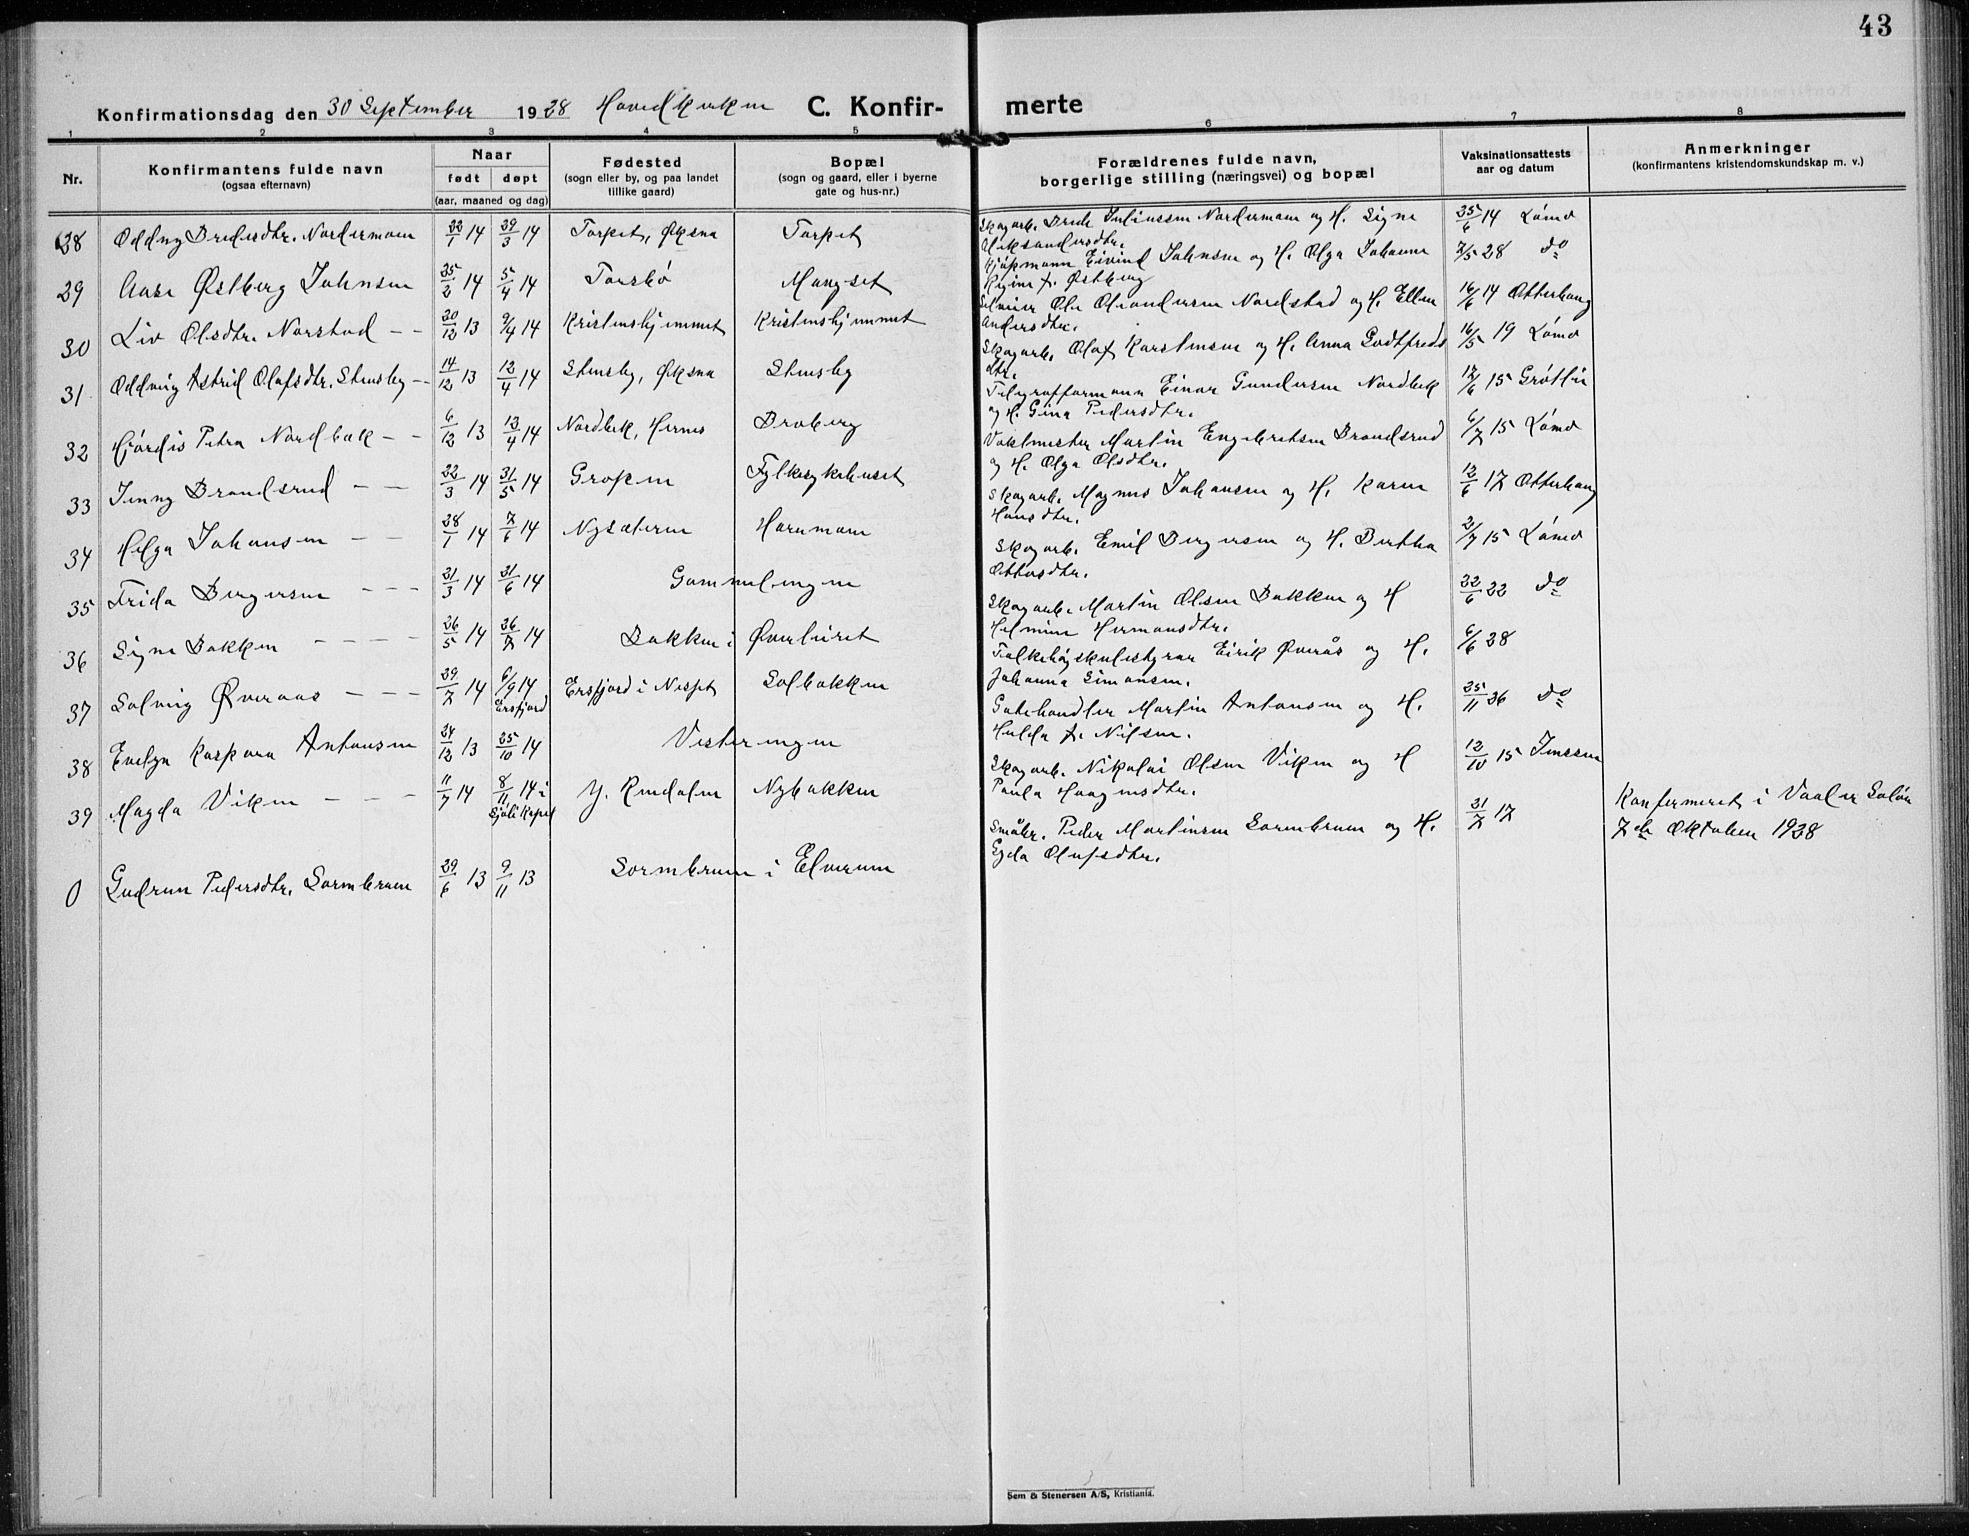 43
Konfirmationsdag den 30 September 1928 Hovedkirken C. Konfirmerte
1 2 3 4 5 6 7 8
Nr.
Konfirmantens fulde navn
(ogsaa efternavn)
Naar
født døpt
(aar, maaned og dag)
Fødested
(sogn eller by, og paa landet
tillike gaard)
Bopæl
(sogn og gaard, eller i byerne
gate og hus-nr.)
Forældrenes fulde navn,
borgerlige stilling (næringsvei) og bopæl
Vaksinationsattests
aar og datum
Anmerkninger
(konfirmantens kristendomskundskap m. v.)
28 Oddny Bredesdtr. Nordermoen 22/1 14 29/3 14 Torpet, Øksna Torpet
Skogarb. Brede Juliussen Nordermoen og H. Signe
Aleksandersdtr. 25/6 14 Lømo
29 Aase Østberg Johnsen 25/2 14 5/4 14 Torsbø Mangset
Kjøpmann Eivind Johnsen og H. Olga Johanne
Regine f. Østberg 7/5 28 do
30 Liv Olsdtr. Norstad - - 20/12 13 9/4 14 Kristenshjemmet Kristenshjemmet
Ole Nordstad og H. Ellen
Andersdtr. 16/6 14 Otterhaug
31 Oddveig Astrid Olafsdtr. Stensby - - 14/12 13 12/4 14 Stensby, Øksna Stensby
Skogarb. Olaf Karstensen og H. Anna Godtfreds
dtr. 16/5 19 Lømo
32 Hjørdis Petra Nordbæk - - 6/12 13 13/4 14 Nordbek, Hernes Broberg
Telegrafformann Einar Gundersen Nordbek
og H. Gina Pedersdtr. 17/6 15 Grøtlie
33 Jenny Brandsrud - - 22/3 14 31/5 14 Gropen Fylkesykehuset
Vaktmester Martin Engebretsen Brandsrud
og H. Olga Olsdtr. 6/7 15 Lømo
34 Helga Johansen - - 28/1 14 7/6 14 Nysæteren Hornmoen
Skogarb. Magnus Johansen og H. Karen
Hansdtr. 12/6 17 Otterhaug
35 Frida Bergersen - - - 21/3 14 21/6 14 Gammelengen
Skogarb. Emil Bergersen og H. Bertha
Ottersdtr. 2/7 15 Lømo
36 Signe Bakken - - - - 26/5 14 26/7 14 Bakken i Øverburet
Skogarb. Martin Olsen Bakken og H
Helmine Hermansdtr. 22/6 22 do
37 Solveig Øveraas - - - 29/7 14 6/9 14 Ersfjord Ersfjord i Solbakken
Folkehøgskulestyrar Eirik Øverås og H.
Johanna Simonsen. 6/6 28
38 Evelyn Kaspara Antonsen 24/12 13 25/10 14 Vesterengen
Gatehandler Martin Antonsen og H.
Hulda f. Nilsen. 25/11 26 do
39 Magda Viken - - - 11/7 14 8/11 14 i Sjøli Kapel Y. Rendalen Nybakken
Skogarb. Nikolai Olsen Viken og H
Paula Haagensdtr. 12/10 15 Jenssen
0 Gudrun Pedersdtr. Sormbrum 29/6 13 9/11 13 Sormbrum i Elverum
Småbr. Peder Martinsen Sormbrum og H.
Egda Olufsdtr. 21/7 17
Konfirmeret i Vaaler Solør
7de Oktober 1928
Sem & Stenersen A/S, Kristiania.